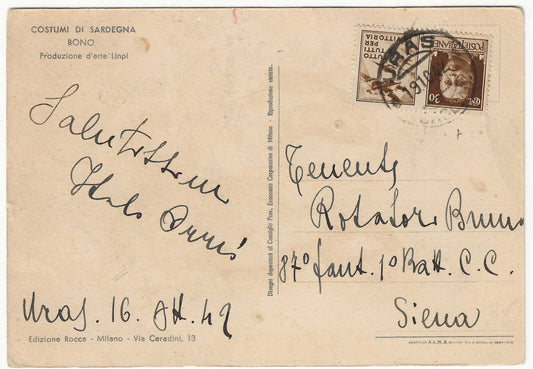 COSTUMI DI SARDEGNA
BONO
Produzione d'arte Linpi
Italo
Uras. 16. 42
Edizione Rocca - Milano - Via Ceradini, 13
Disegni depositati al Consiglio Prov. Economia Corporativa di Milano - Riproduzione vietata.
TUTTO
E TUTTI
PER
VITTORIA
POSTE ITALIANE
CENT. 30
URAS
Tenente
Rotatori Bruno
87º fant. 1º Batt. C. C.
Siena